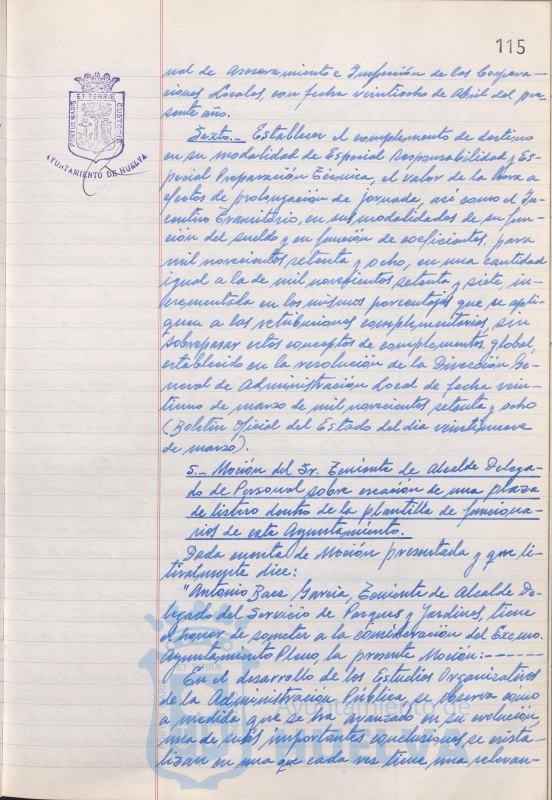 115
PORTUS MARIS ET TERRAE CUSTODIA
AYUNTAMIENTO DE HUELVA
nal de Asesoramiento e Inspección de las Corpora-
ciones Locales, con fecha veintiocho de Abril del pre-
sente año.
Sexto.- Establecer el complemento de destino
en su modalidad de Especial Responsabilidad y Es-
pecial Preparación Técnica, el valor de la hora a
efectos de prolongación de jornada, así como el In-
centivo Transitorio, en sus modalidades de en fun-
ción del sueldo y en función de coeficientes, para
mil novecientos setenta y ocho, en una cantidad
igual a la de mil novecientos setenta y siete, in-
crementada en los mismos porcentajes que se apli-
quen a las retribuciones complementarias, sin
sobrepasar estos conceptos de complementos, global,
establecido en la resolución de la Dirección Ge-
neral de Administración Local de fecha vein-
tiuno de marzo de mil novecientos setenta y ocho
(Boletín Oficial del Estado del día veintinueve
de marzo).
5.- Moción del Sr. Teniente de Alcalde Delega-
do de Personal sobre creación de una plaza
de listero dentro de la plantilla de funciona-
rios de este Ayuntamiento.
Dada cuenta de Moción presentada y que li-
teralmente dice:
"Antonio Baez García, Teniente de Alcalde De-
legado del Servicio de Parques y Jardines, tiene
el honor de someter a la consideración del Excmo.
Ayuntamiento Pleno, la presente Moción:-------
En el desarrollo de los Estudios Organizativos
de la Administración Pública, se observa como
a medida que se ha avanzado en su evolución,
una de sus importantes conclusiones, se crista-
lizan en una que cada vez tiene una relevan-
Ayuntamiento de
HUELVA